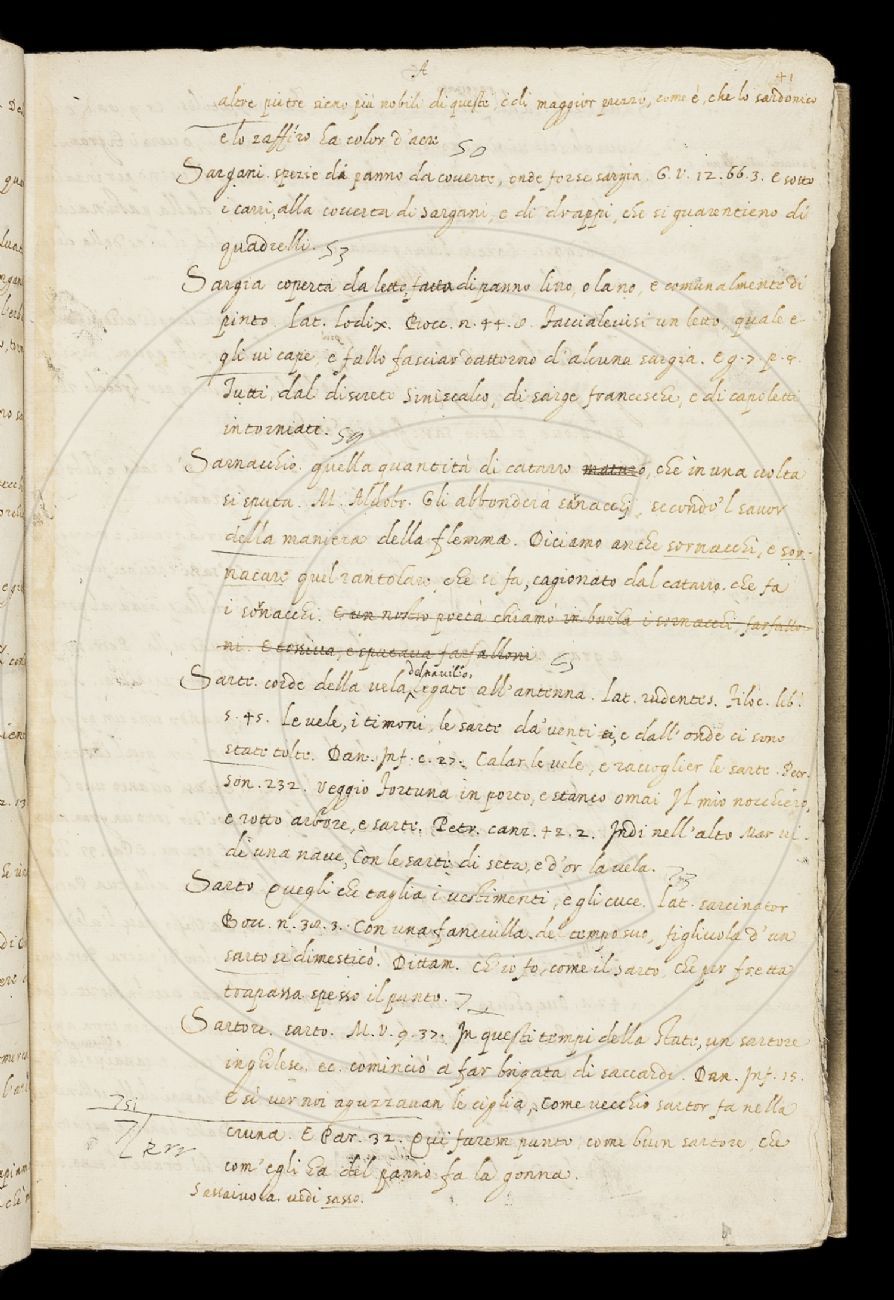 A
41
altre pietre sieno più nobili di queste, e di maggior prezzo, come è, che lo sardonico
e lo zaffiro ha color d'aere 50
Sargani. spezie di panno da coverte, onde forse sargia. G. V. 12. 66. 3. E sotto
i carri, alla coverta di Sargani, e di drappi, che si guarentieno di
quadrelli. 53
Sargia coperta da letto, fatta di panno lino, o lano, e comunalmente di
pinto. Lat. Lodix. Bocc. n. 44. 8. Faccialevisi un letto, quale e
gli vi cape, e fallo fasciar dattorno d'alcuna sargia. E g. 7. p. 8.
Tutti, dal discreto Siniscalco, di sarge francesche, e di capoletti
intorniati. 59
Sarnacchio. quella quantità di catarro, che in una volta
si sputa. M. Aldobr. Gli abbonderà sornacchi, secondo 'l savor
della maniera della flemma. Diciamo anche sornacchi, e sor-
nacare quel rantolare, che si fa, cagionato dal catarro. che fa
i sornacchi. E un nostro poeta chiamò in burla i sornacchi, farfallo-
ni. E tossiva, e sputava farfalloni.
Sarte. corde della vela, del navilio, legate all'antenna. Lat. rudentes. Filoc. lib.
5. 45. Le vele, i timoni, le sarte da' venti, e dall'onde ci sono
state tolte. Dan. Inf. c. 27. Calar le vele, e raccoglier le sarte. Petr.
son. 232. Veggio Fortuna in porto, e stanco omai Il mio nocchiero,
e rotto arbore, e sarte. Petr. canz. 42. 2. Indi nell'alto Mar vi-
di una nave, Con le sarti di seta, e d'or la vela.
Sarto Quegli che taglia i vestimenti, e gli cuce. Lat. sarcinator
Bocc. n. 38. 3. Con una fanciulla del tempo suo, figliuola d'un
sarto si dimesticò. Dittam. Ch'io fo, come il sarto, che per fretta
trapassa spesso il punto.
Sartore. sarto. M. V. 9. 37. In questi tempi della State, un sartore
inghilese. ec. cominciò a far brigata di saccardi. Dan. Inf. 15.
E sì ver noi aguzzavan le ciglia, Come vecchio sartor fa nella
cruna. E Par. 32. Qui farem punto, come buon sartore, che
com' egli ha del panno fa la gonna.
Sassaiuola. vedi sasso.